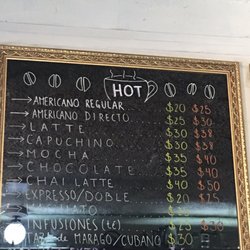 HOT
→AMERICANO REGULAR $20 $25
→AMERICANO DIRECTO $25 $30
→LATTE $30 $38
→CAPUCHINO $30 $38
→MOCHA $35 $40
→CHOCOLATE $35 $40
→CHAI LATTE $40 $50
EXPRESSO/DOBLE $20 $25
INFUSIONES (té) $25 $30
DE MARAGO/CUBANO $30